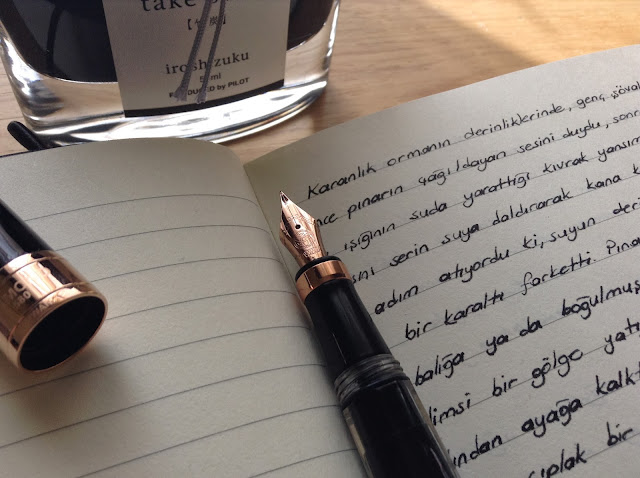 take
【竹炭】
iroshizuku
50ml
PRODUCED by PILOT
Karanlık ormanın derinliklerinde, genç şöval
nce pınarın çağıldayan sesini duydu, sonr
ışığının suda yarattığı kıvrak yansım
serin suya daldırarak kana k
adım atıyordu ki, suyun deri
bir karaltı farketti. Pına
balığa ya da boğulmuş
limsi bir gölge yatı
ından ayağa kalkt
çıplak bir